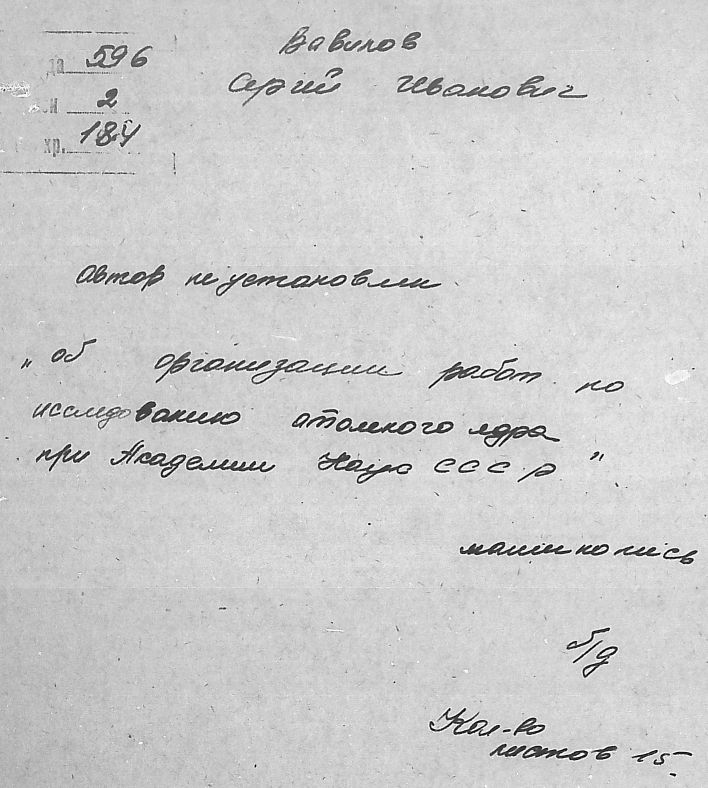 да 596
и 2
хр. 184
Вавилов
Сергей Иванович
Автор не установлен
„Об организации работ по
исследованию атомного ядра
при Академии Наук СССР"
машинопись
б/д
Кол-во
листов 15